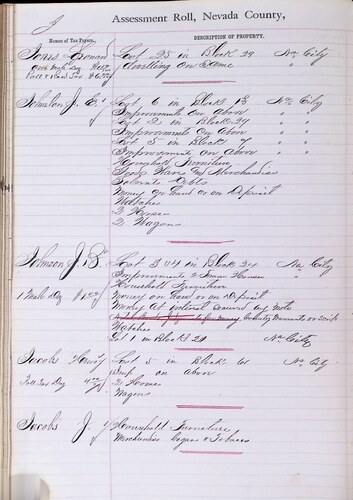 J
Assessment Roll, Nevada County,
Names of Tax Payers.
DESCRIPTION OF PROPERTY.
Jones Leonard Lot 25 in Block 29 Na City
Dwelling on Same "
Johnston J. E. Lot 6 in Block 13 Na City
Improvements on Above " "
Lot 21 in Block 24 " "
Improvements on Above " "
Lot 5 in Block 7 " "
Improvements on Above " "
Household Furniture
Goods Wares & Merchandise
Solvent Debts
Money on hand or on Deposit
Watches
2 Horses
2 Wagons
Johnson J. Lot in Block 24 Na City
Improvements
1 Male Dog Household Furniture
Money on hand or on Deposit
Money at interest secured by note
Watches
Lot 1 in Block 29 Na City
Jacobs Lot 5 in Block 61 Na City
Imp on above
2 Horses
Wagons
Jacobs J. Household Furniture
Merchandise Cigars & Tobacco